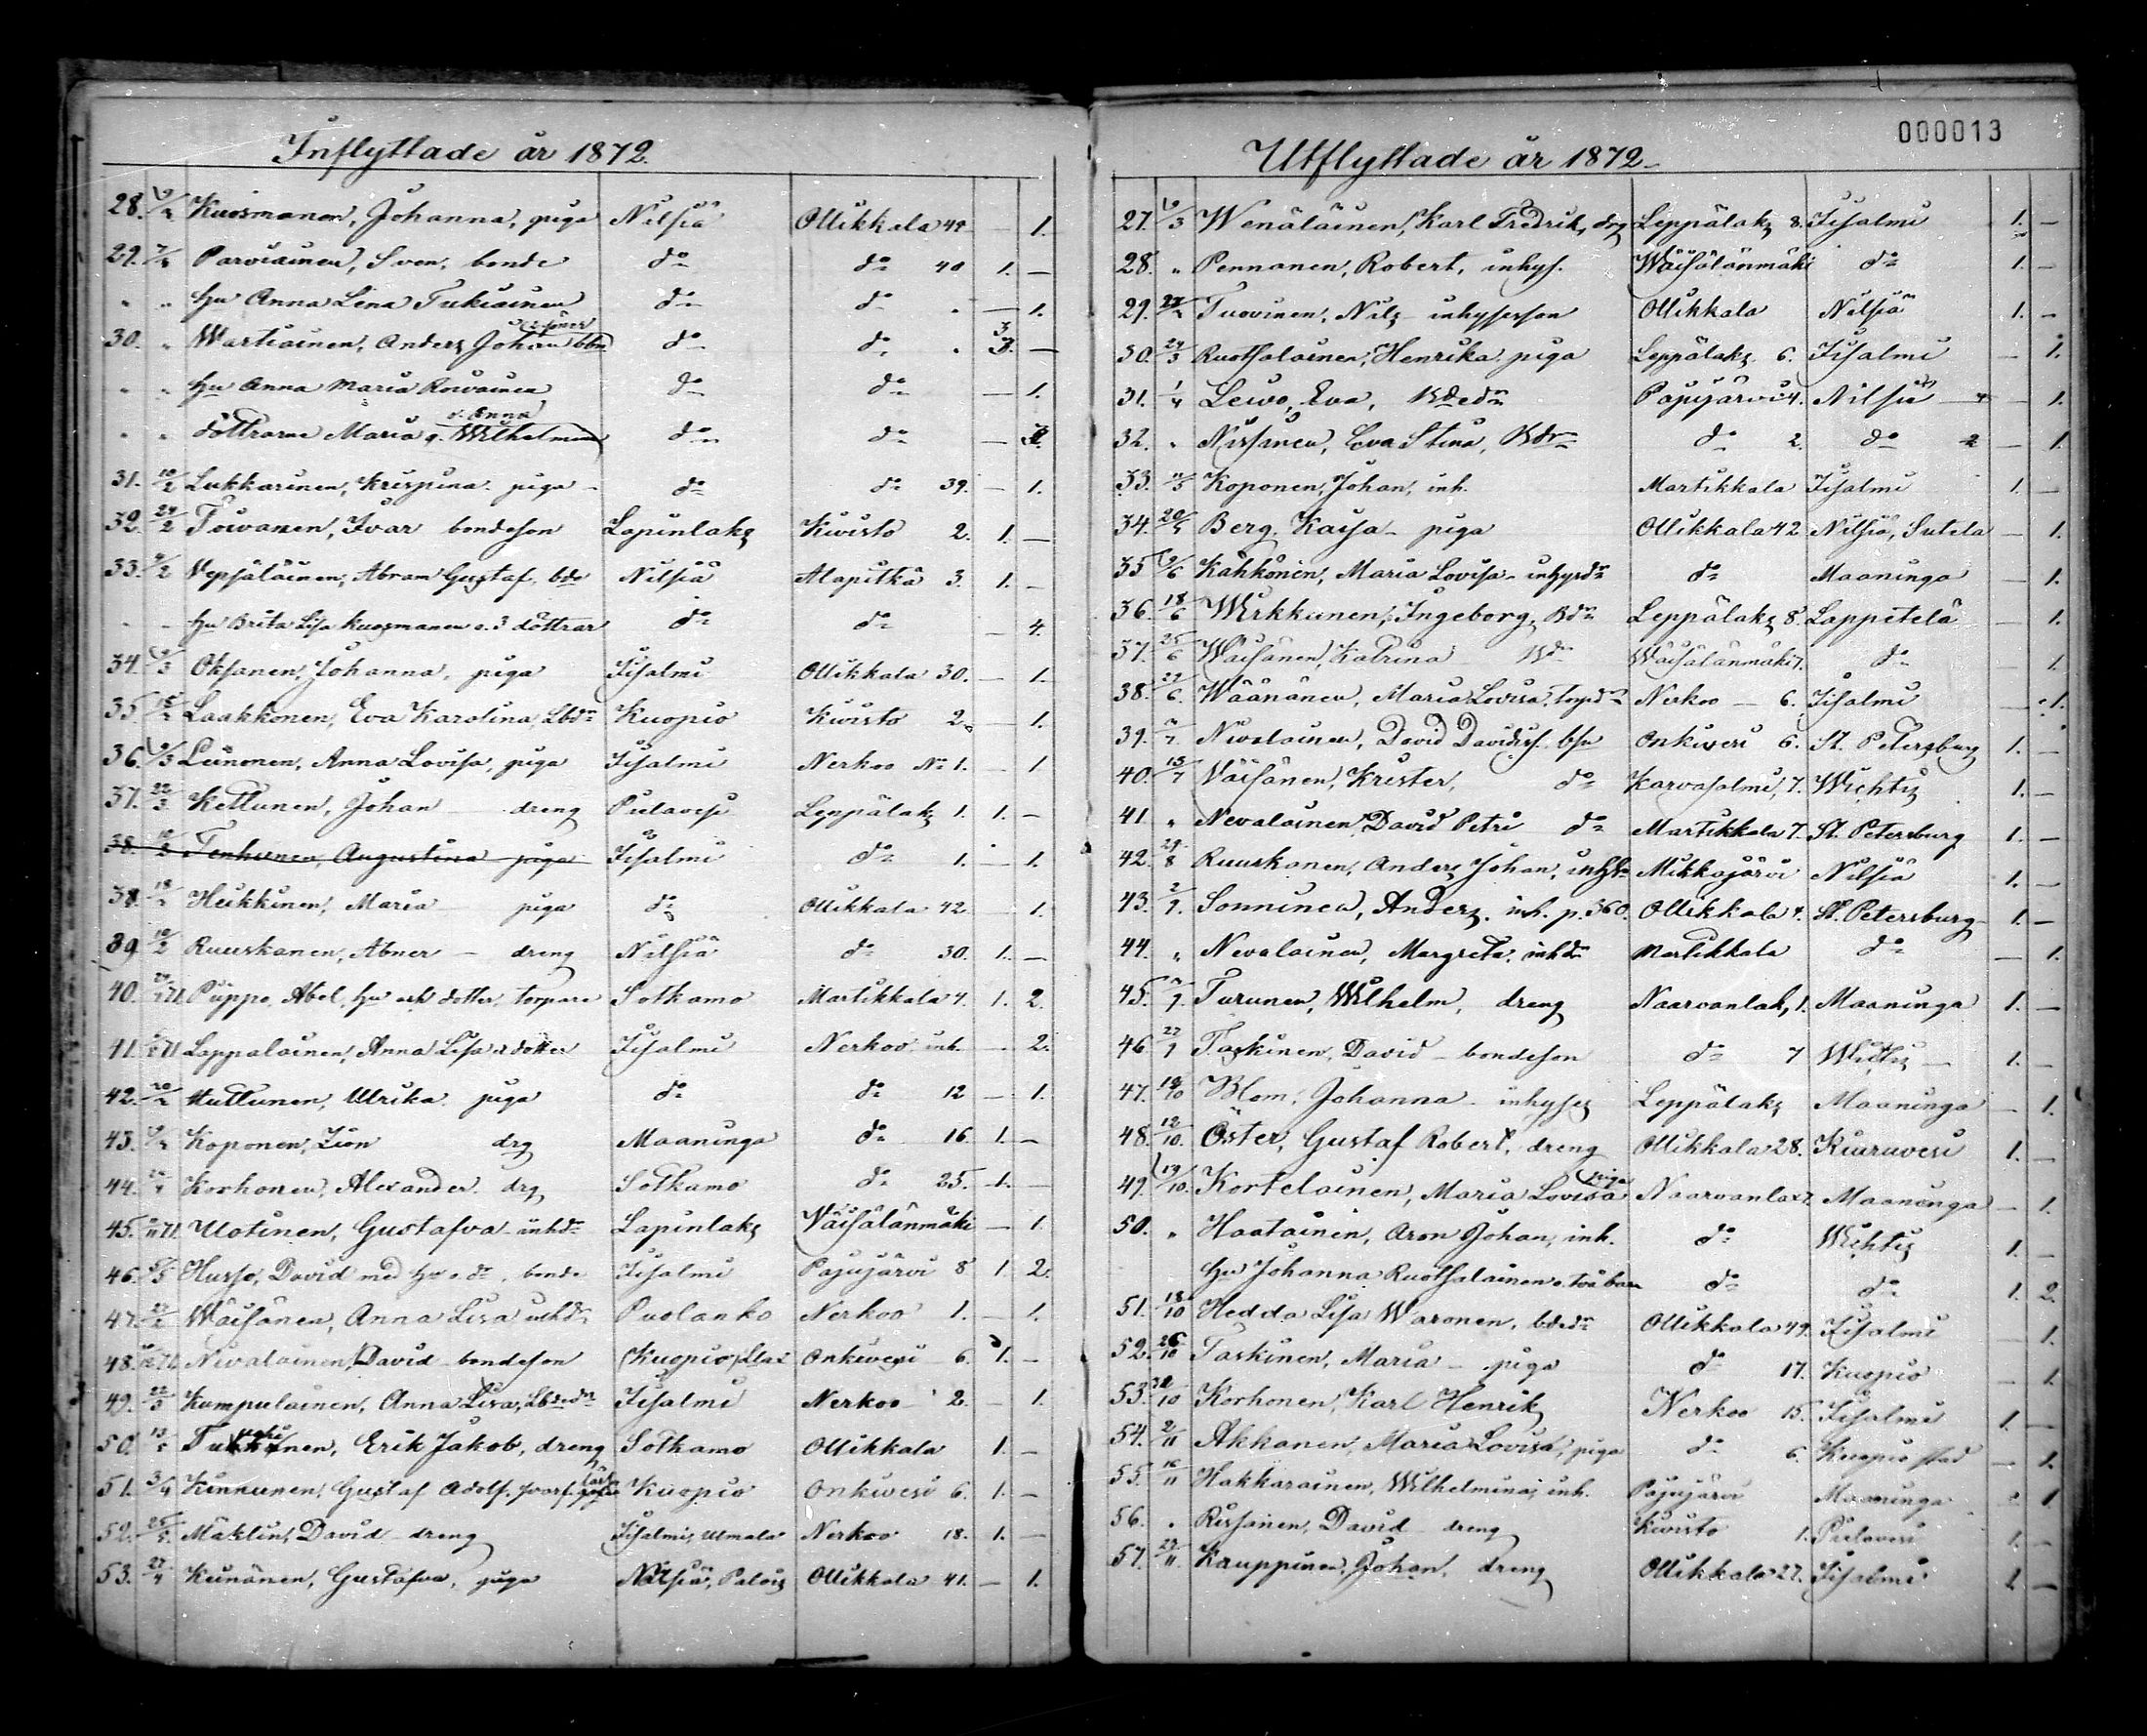 Inflyttade år 1872.
28. Kuosmanen, Johanna, piga Nilsiä Ollikkala 42 — 1.
29. Parviainen, Sven, bonde do do 40 1. —
" " hu Anna Lena Tukiainen do do " — 1.
30. " Wartiainen, Anders Johan do do " 3. —
" " hu Anna Maria do do — 1.
o. Anna
" " döttrarne Maria o. Wilhelmina do do —
31. 10/2 Lukkarinen, Krispina piga do do 39. — 1.
32. 24/2 Toivanen, Ivar bondeson Lapinlaks Kivistö 2. 1. —
33. Vepsäläinen, Abram Gustaf, bde Nilsiä Alapitkä 3. 1. —
hu Brita Lisa Kuosmanen o. 3 döttrar do do — 4.
34. Oksanen, Johanna, piga Iisalmi Ollikkala 30. — 1.
35. Laakkonen, Eva Karolina, Lbdr Kuopio Kivistö 2. — 1.
36. Leinonen, Anna Lovisa, piga Iisalmi Nerkoo No 1. — 1
37. 22/3 Kettunen, Johan dreng Pielavesi Leppälaks 1. 1. —
38. Tenhunen, Augustina piga Iisalmi do 1. — 1.
38. Heikkinen, Maria piga do Ollikkala 42. — 1.
39. 10/2 Ruuskanen, Abner — dreng Nilsiä do 30. 1. —
40. Piippo, Abel, hu och dotter, torpare Sotkamo Martikkala 4. 1. 2.
41. Lappalainen, Anna Lisa o dotter Iisalmi Nerkoo inh. — 2.
42. Huttunen, Ulrika piga do do 12 — 1.
43. Koponen, Zion drg Maaninga do 16. 1. —
44. Korhonen, Alexander drg Sotkamo do 25. 1. —
45. Uotinen, Gustafva inhdr Lapinlaks Väisälänmäki — 1.
46. Husso, David med hu o. dr, bonde Iisalmi Pajujärvi 8 1. 2.
47. 27/2 Wäisänen, Anna Lisa inhdr Puolanko Nerkoo 1. — 1.
48. Nivalainen, David bondeson Kuopio Onkivesi 6. 1. —
49. 22/3 Kumpulainen, Anna Lisa, Lbdedr Iisalmi Nerkoo 2. — 1.
50. Erik Jakob, dreng Sotkamo Ollikkala 1. —
51. 3/4 Kinnunen, Gustaf Adolf Kuopio Onkivesi 6. 1. —
52. Mäklin, David dreng Iisalmi, Nerkoo 18. 1. —
53. 27/4 Keinänen, Gustafva, piga Nilsiä, Palois Ollikkala 41. — 1.
000013
Utflyttade år 1872
27. Wenäläinen, Karl Fredrik, drg Leppälaks 8. Iisalmi 1. —
28. " Pennanen, Robert, inhys. Wäisälänmäki do 1. —
29. Tuovinen, Nils inhysesson Ollikkala Nilsiä 1. —
30. Ruotsalainen, Henrika piga Leppälaks 6. Iisalmi — 1.
31. 1/4 Leivo, Eva, Bdedr Pajujärvi 4. Nilsiä — 1.
32. " Nissinen, Eva Stina, Bdr do 2. do — 1.
33. Koponen, Johan, inh. Martikkala Iisalmi 1. —
34. Berg, Kaisa piga Ollikkala 42 Nilsiä, Sutela — 1.
35 Kähkönen, Maria Lovisa inhysdr do Maaninga — 1.
36. 18/6 Wirkkunen, Ingeborg, Bdr Leppälaks 8. Lappitelä — 1.
37. 25/6 Wäisänen, Katrina Bdr Wäisälänmäki 7. do — 1.
38. 27/6 Wäänänen, Maria Lovisa, Torpdr Nerkoo — 6. Iisalmi — 1.
39. Nivalainen, David Davidss. bsn Onkivesi 6. St. Petersburg 1. —
40. 15/7 Väisänen, Krister, do Karvasalmi, 7. Wichtis 1. —
41. " Nevalainen, David Petri do Martikkala 7. St. Petersburg 1. —
42. 29/8 Ruuskanen, Anders Johan, Mikkajärvi Nilsiä 1. —
43. Sonninen, Anders. inh. p. 360. Ollikkala 4. St. Petersburg 1. —
44. " Nevalainen, Margreta, inhdr Martikkala do — 1.
45. Turunen, Wilhelm, dreng Naarvanlaks, 1. Maaninga 1. —
46 Taskinen, David — bondeson do 7 Wichtis 1. —
47. Blom, Johanna — inhyses Leppälaks Maaninga — 1.
48. 12/10. Öster, Gustaf Robert, dreng Ollikkala 28. Kiuruvesi 1. —
piga
49. 13/10. Kortelainen, Maria Lovisa Naarvanlax 7. Maaninga — 1.
50. " Haatainen, Aron Johan, inh. do Wichtis 1. —
hu Johanna Ruotsalainen o. två barn do do 1. 2.
51. 18/10 Hedda Lisa Waronen, bdedr Ollikkala 49. Iisalmi — 1.
52. 26/10 Taskinen, Maria — piga do 17. Kuopio — 1.
53. Korhonen, Karl Henrik Nerkoo 15. Iisalmi 1. —
54. 2/11 Akkanen, Maria Lovisa, piga do 6. Kuopio stad — 1.
55. 16/11 Hakkarainen, Wilhelmina, inh. Pajujärvi Maaninga 1
56. " Rissanen, David dreng Kivistö 1. Pielavesi 1. —
57. 29/11 Kauppinen, Johan, dreng Ollikkala 27. Iisalmi 1 —